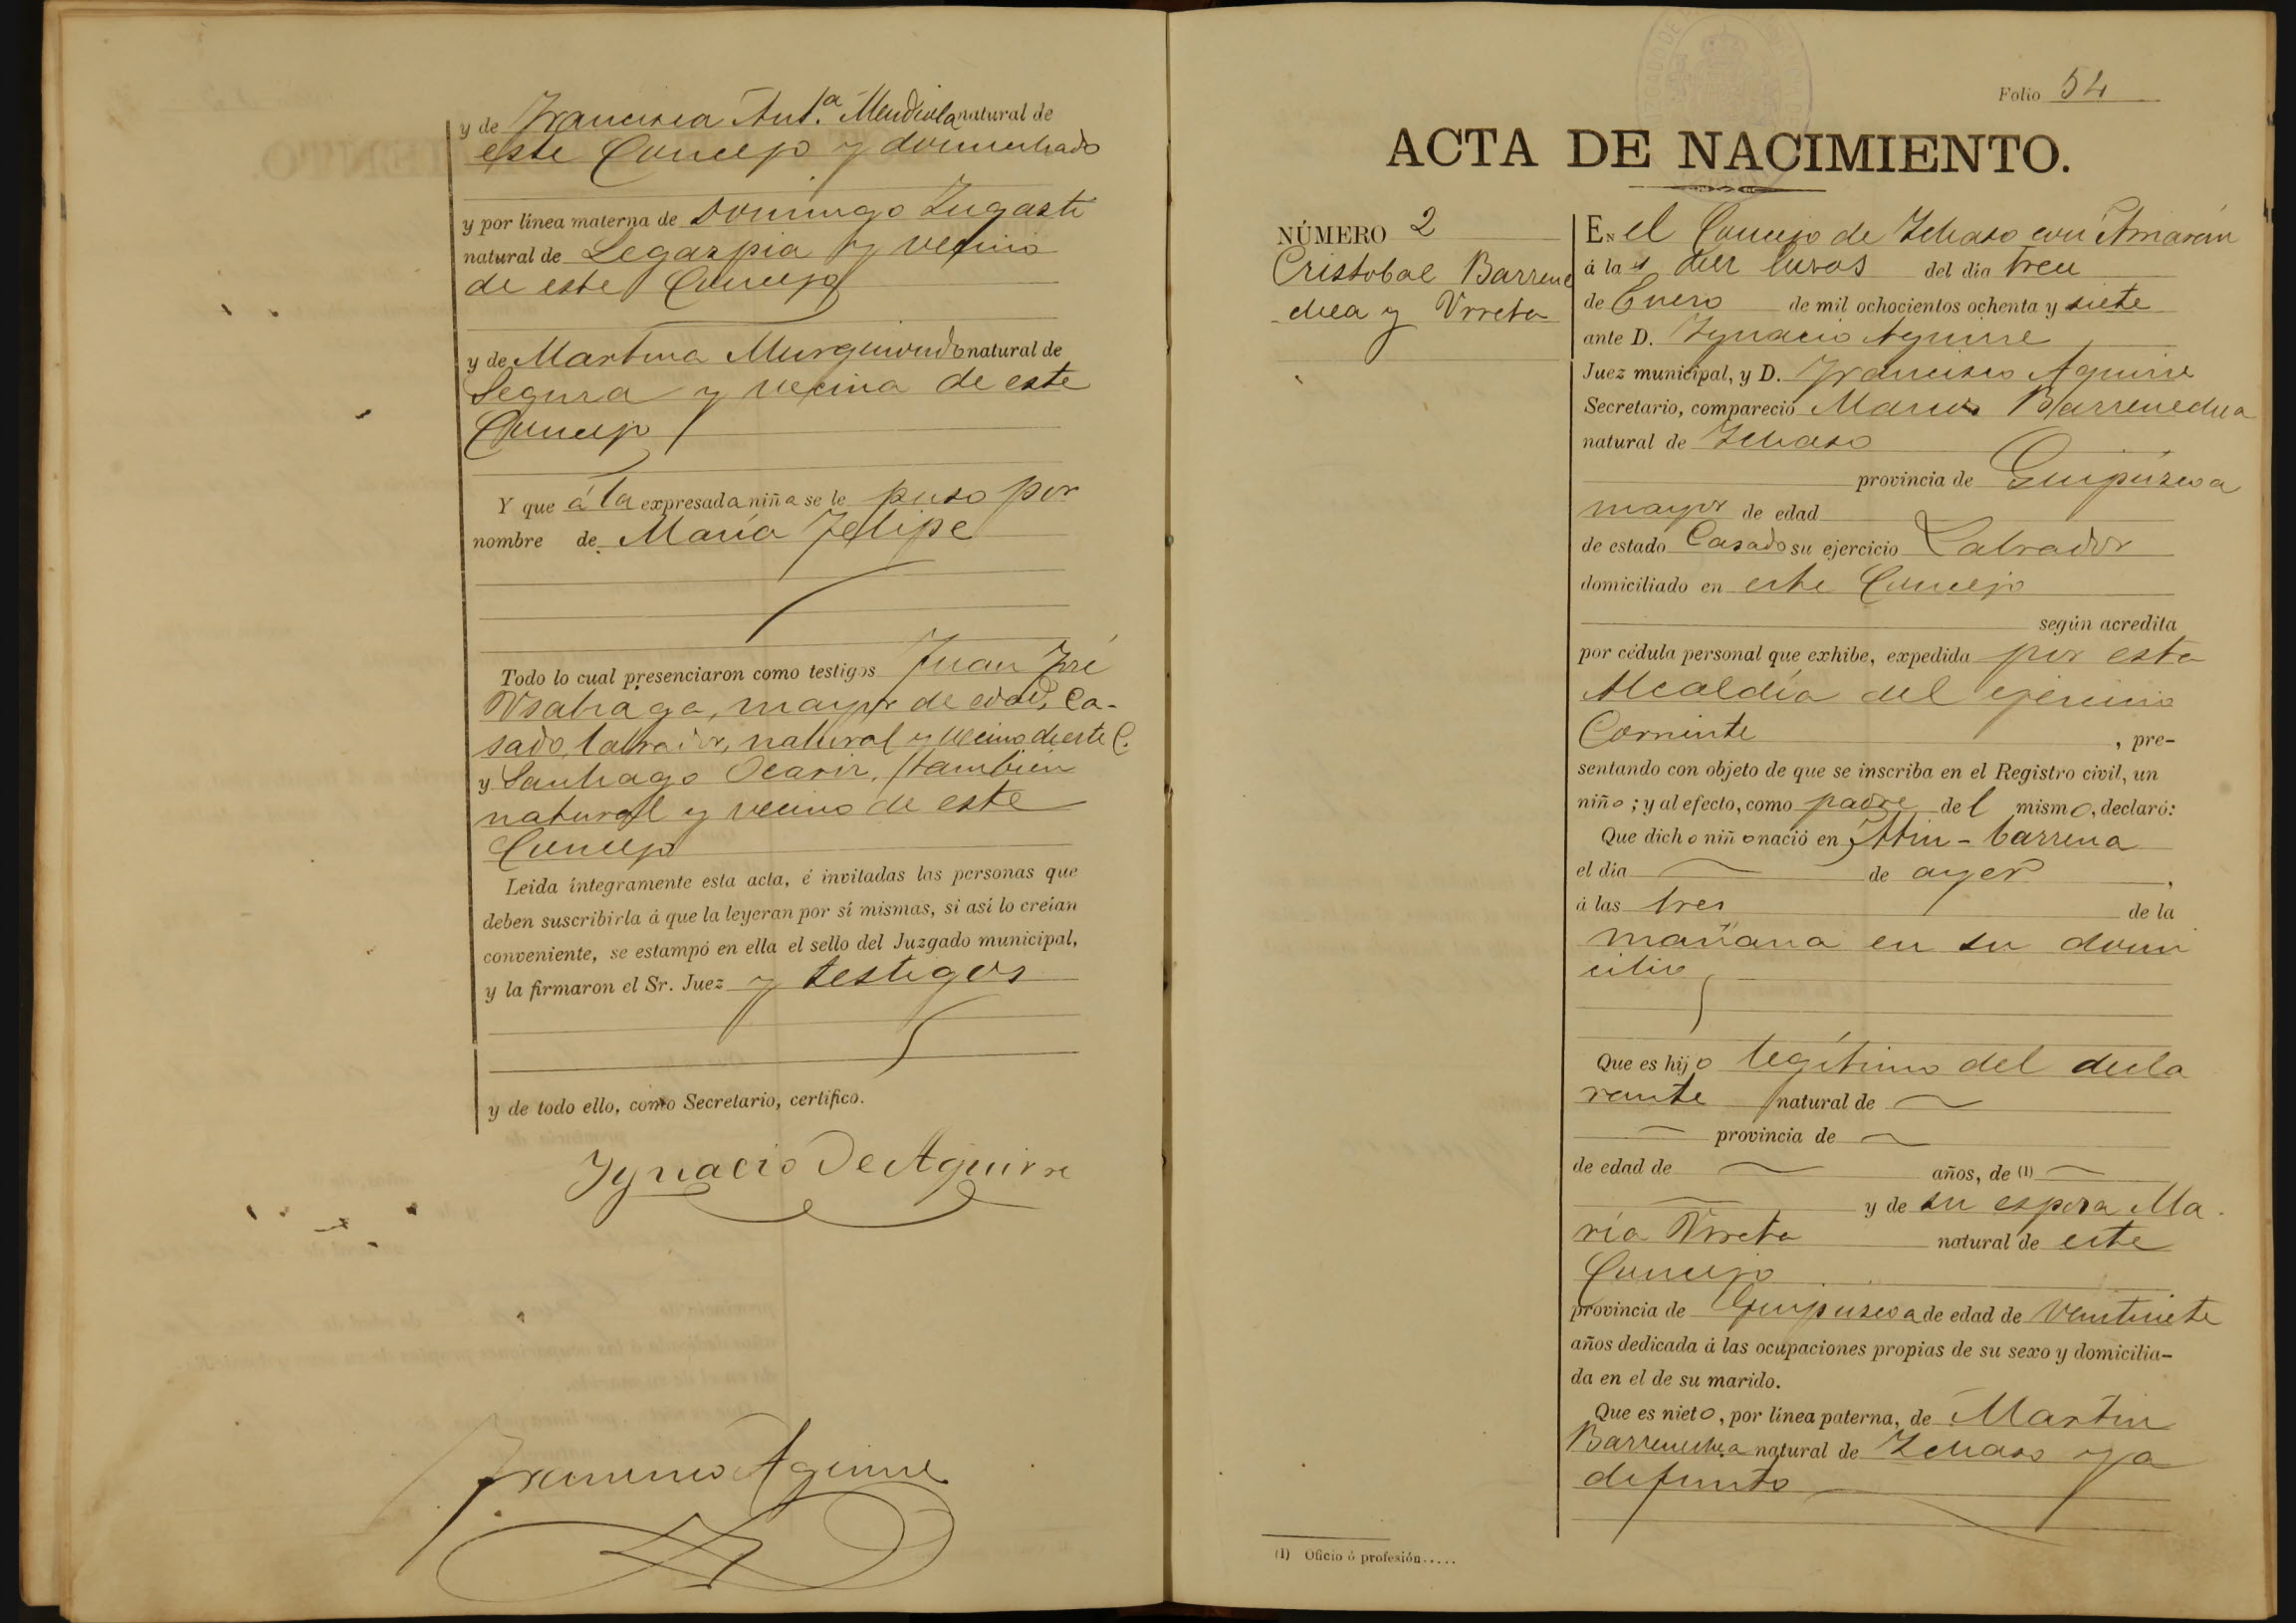 y de Francisca Ant.ª Mendiola natural de
este Concejo y domiciliado
y por línea materna de Domingo Zugasti
natural de Legazpia y vecino
de este Concejo
y de Martina Murguiondo natural de
Segura y vecina de este
Concejo
Y que á la expresada niña se le puso por
nombre de María Felipe
Todo lo cual presenciaron como testigos Juan José
Usabiaga, mayor de edad, Ca-
sado, labrador, natural y vecino de este C.
y Santiago Ocariz, también
natural y vecino de este
Concejo
Leida íntegramente esta acta, é invitadas las personas que
deben suscribirla á que la leyeran por sí mismas, si así lo creían
conveniente, se estampó en ella el sello del Juzgado municipal,
y la firmaron el Sr. Juez y testigos
y de todo ello, como Secretario, certifico.
Ygnacio De Aguirre
Francisco Aguirre
Folio 54
ACTA DE NACIMIENTO.
NÚMERO 2
Cristobal Barrene
chea y Urreta
En el Concejo de Ichaso con Arriarán
á las diez horas del dia trece
de Enero de mil ochocientos ochenta y siete
ante D. Ygnacio Aguirre
Juez municipal, y D. Francisco Aguirre
Secretario, compareció Marcos Barrenechea
natural de Ichaso
provincia de Guipúzcoa
mayor de edad
de estado Casado su ejercicio Labrador
domiciliado en este Concejo
según acredita
por cédula personal que exhibe, expedida por esta
Alcaldía del ejercicio
Corriente, pre-
sentando con objeto de que se inscriba en el Registro civil, un
niño; y al efecto, como padre del mismo, declaró:
Que dicho niño nació en barrena
el dia de ayer,
á las tres de la
mañana en su domi
cilio
Que es hijo legítimo del decla
rante natural de
provincia de
de edad de años, de (1)
y de su esposa Ma
ría Urreta natural de este
Concejo
provincia de Guipuzcoa de edad de veintisiete
años dedicada á las ocupaciones propias de su sexo y domicilia-
da en el de su marido.
Que es nieto, por línea paterna, de Martin
Barrenechea natural de Ichaso ya
difunto
(1) Oficio ó profesión.....